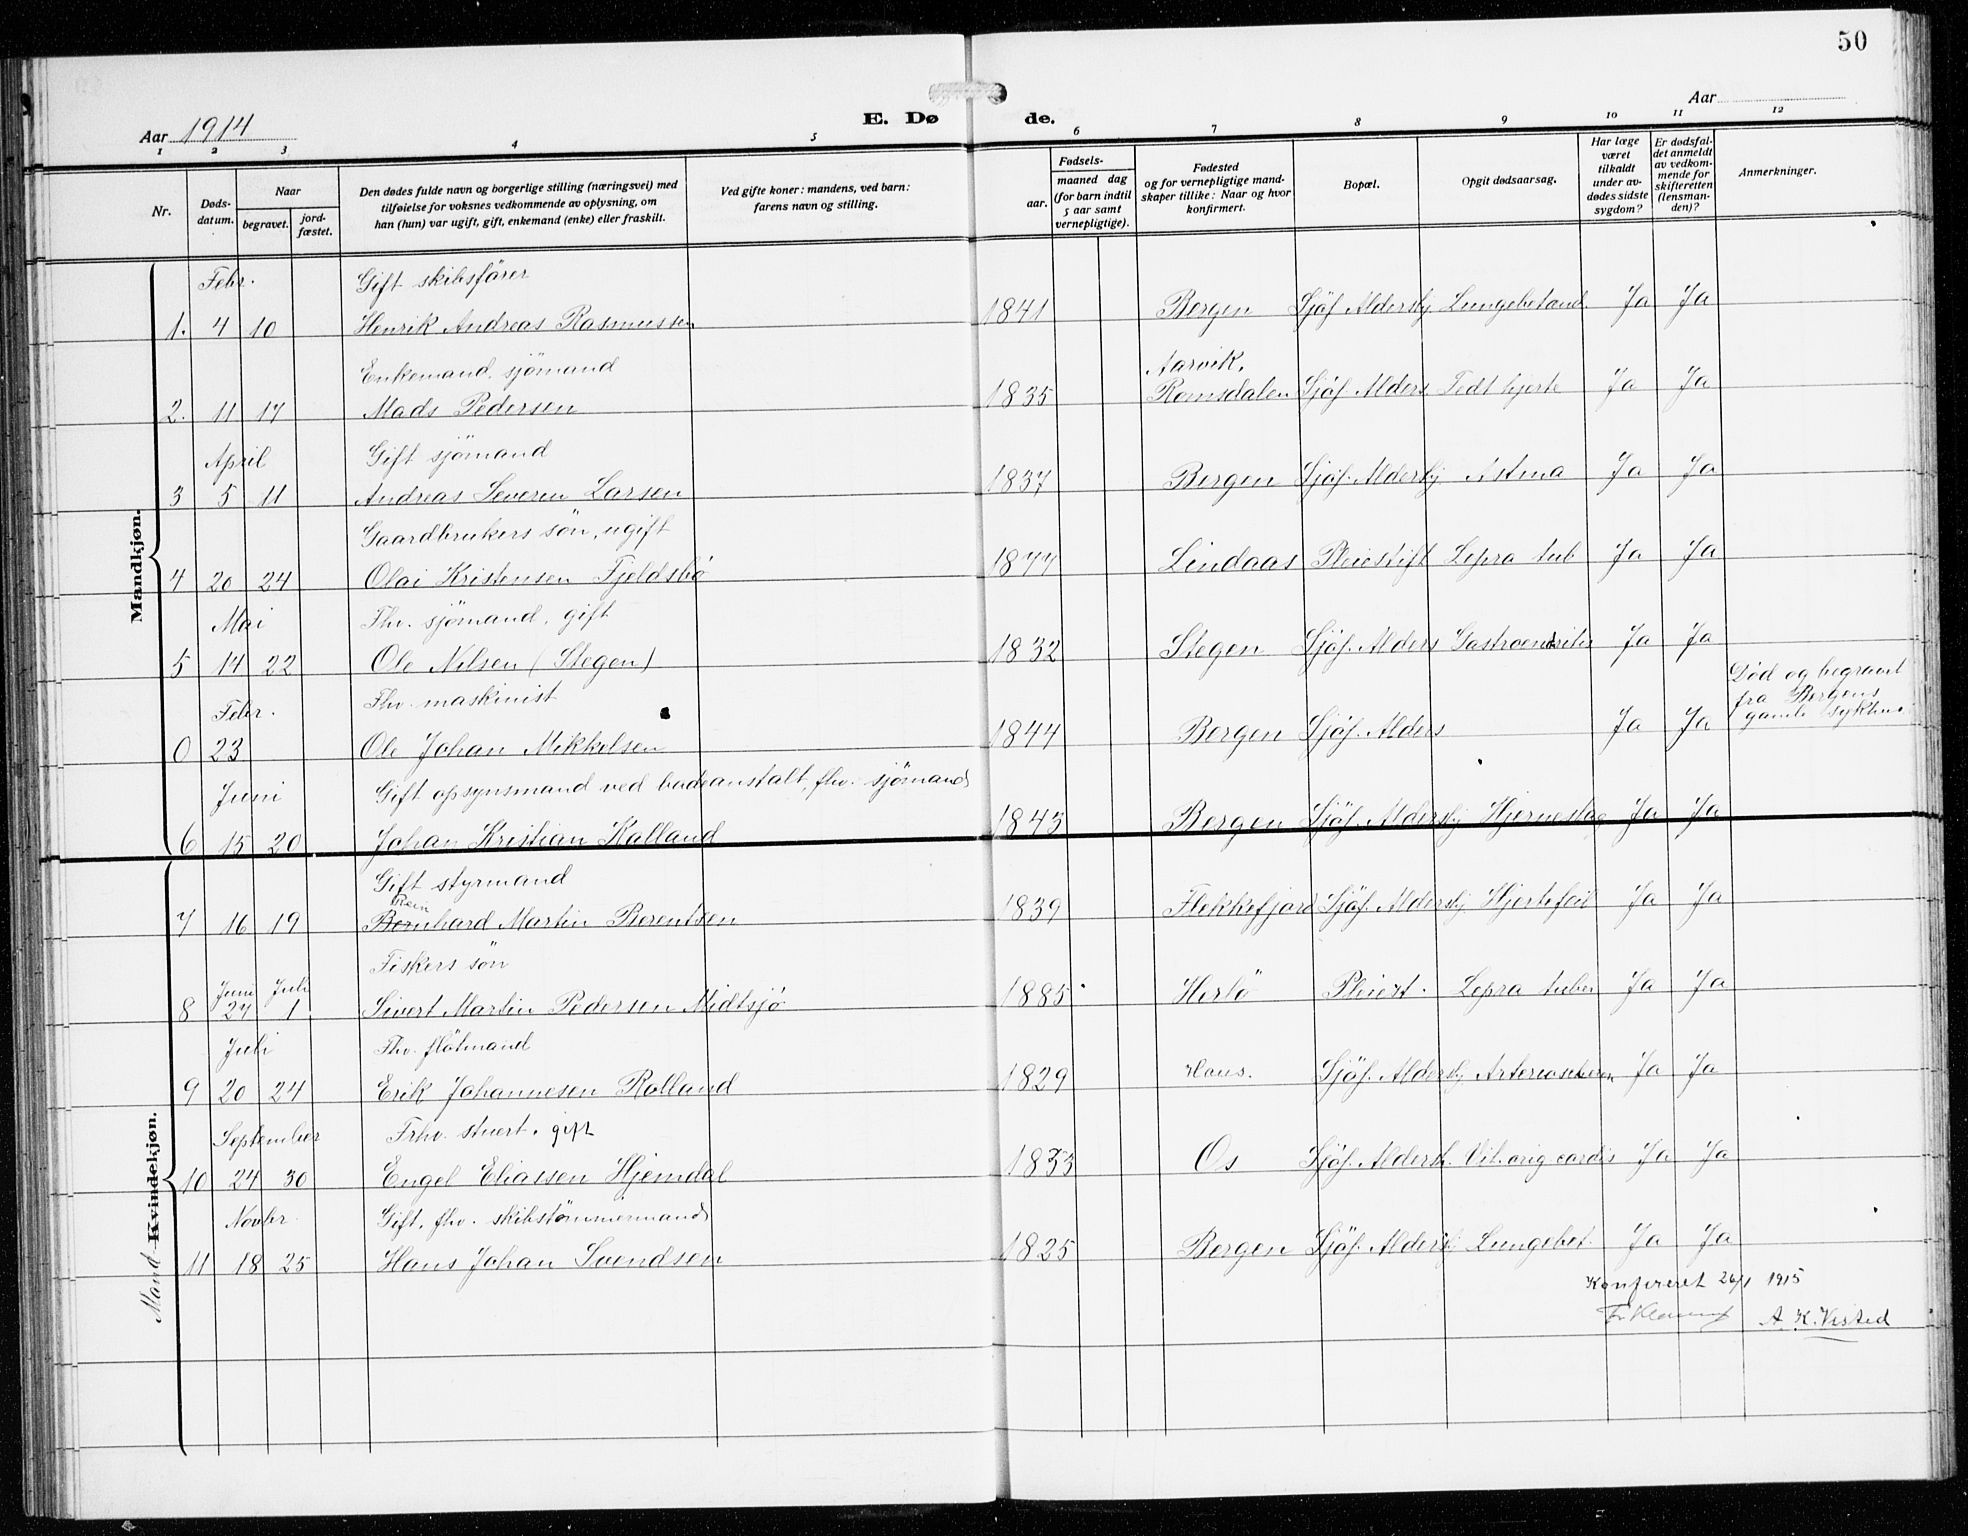 50
Aar 1914
E. Dø de.
Aar
1 2 3 4 5 6 7 8 9 10 11 12
Nr.
Døds-datum.
Naar
begravet.
jord-fæstet.
Den dødes fulde navn og borgerlige stilling (næringsvei) med
tilføielse for voksnes vedkommende av oplysning, om
han (hun) var ugift, gift, enkemand (enke) eller fraskilt.
Ved gifte koner: mandens, ved barn:
farens navn og stilling.
Fødsels-
aar.
maaned dag
(for barn indtil
5 aar samt
vernepligtige).
Fødested
og for vernepligtige mand-
skaper tillike: Naar og hvor
konfirmert.
Bopæl.
Opgit dødsaarsag.
Har læge
været
tilkaldt
under av-
dødes sidste
sygdom?
Er dødsfal-
det anmeldt
av vedkom-
mende for
skifteretten
(lensman-
den)?
Anmerkninger.
Mandkjøn.
Febr. Gift skibsfører
1. 4 10 Henrik Andreas Rasmussen 1841 Bergen Sjöf. Aldershj. Lungebetænd. Ja Ja
Enkemand, sjömand Aarvik,
2. 11 17 Mads Pedersen 1835 Romsdalen Sjöf. Alders. Fedt hjerte Ja Ja
April Gift sjömand
3 5 11 Andreas Severin Larsen 1837 Bergen Sjöf. Aldershj Astma Ja Ja
Gaardbrukers sön, ugift
4 20 24 Olai Kristensen Fjeldsbö 1877 Lindaas Pleiestift Lepra tub Ja Ja
Mai Fhv. sjömand, gift
5 14 22 Ole Nilsen (Stegen) 1832 Stegen Sjöf. Alders Gastroenteritis Ja Ja
Febr. Fhv. maskinist Död og begravet
fra Bergens
gamle sykehus
0 23 Ole Johan Mikkelsen 1844 Bergen Sjöf. Alders Ja Ja
Juni Gift opsynsmand ved badeanstalt, fhv. sjömand
6 15 20 Johan Kristian Kalland 1843 Bergen Sjöf. Aldershj Hjerneslag Ja Ja
Mand Kvindekjøn.
Gift styrmand
Rein
7 16 19 Bernhard Martin Berentsen 1839 Flekkefjord Sjöf. Aldershj. Hjertefeil Ja Ja
Fiskers sön
Juni Juli
8 27 1 Sivert Martin Pedersen Midtsjö 1885 Herlö Pleiest. Lepra tuber Ja Ja
Juli Fhv. flötmand
9 20 24 Erik Johannesen Rolland 1829 Haus. Sjöf. Aldershj Arterioscleren Ja Ja
September Frhv. stuert. gift
10 24 30 Engel Eliassen Hjemdal 1833 Os Sjöf. Aldersh. Vit. orig cordis Ja Ja
Novbr. Gift, fhv. skibstömmermand
11 18 25 Hans Johan Svendsen 1825 Bergen Sjöf. Aldershj Lungebet. Ja Ja
Konfereret 26/1 1915
A. K. Visted